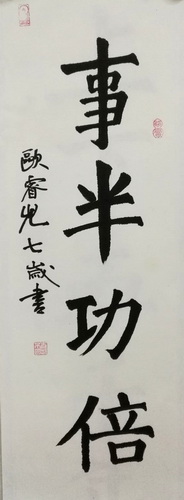 事半功倍
歐睿光七歲書